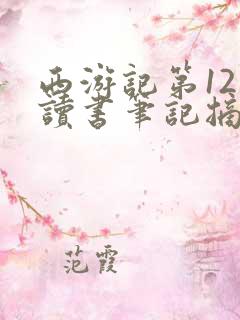 西游記第12
讀書筆記摘
范霞